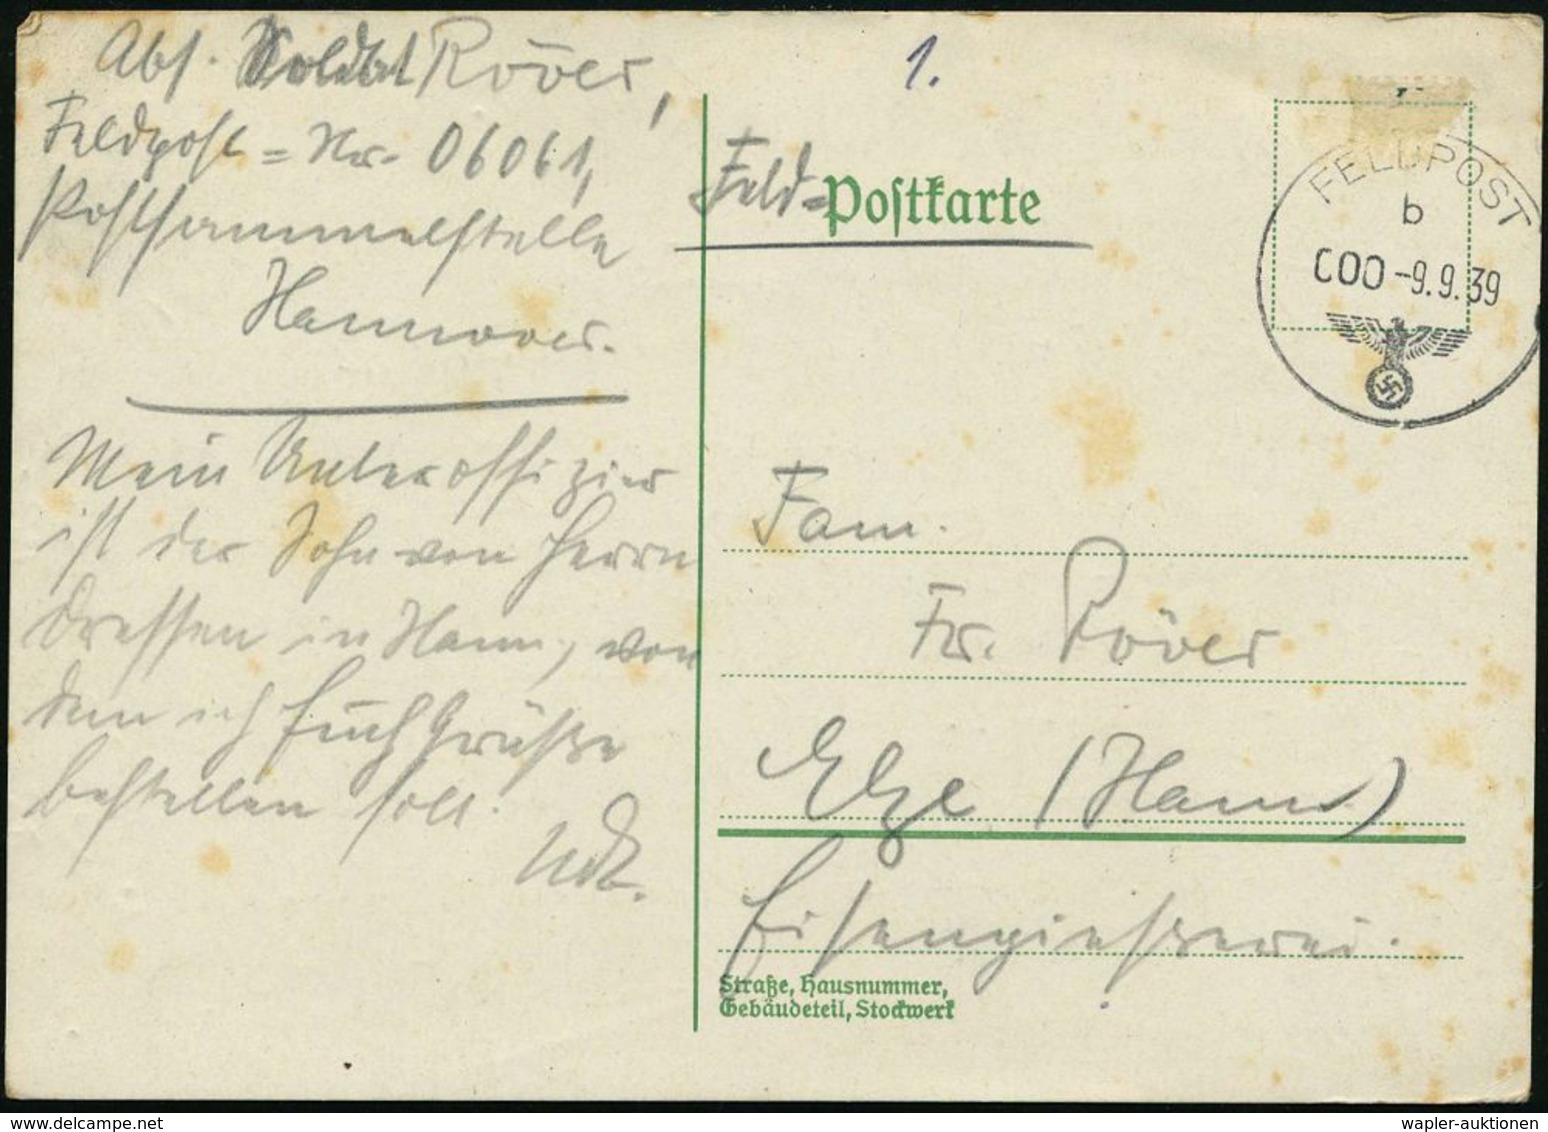 Abs. Soldat Röver,
Feldpost = Nr. 06061,
Postsammelstelle
Hannover.
Mein Unteroffizier
ist der Sohn von Herrn
Dressen in Hann., von
dem ich Euch Grüße
bestellen soll.
1.
Feld=Postkarte
FELDPOST
b
000 -9.9.39
Fam.
Fr. Röver
Elze (Hann)
Eisengießerei.
Straße, Hausnummer,
Gebäudeteil, Stockwerk
wapler-auktionen